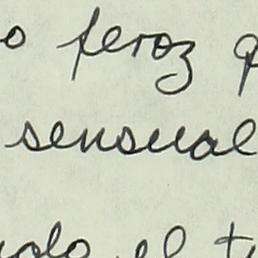 o feroz
sensual
el